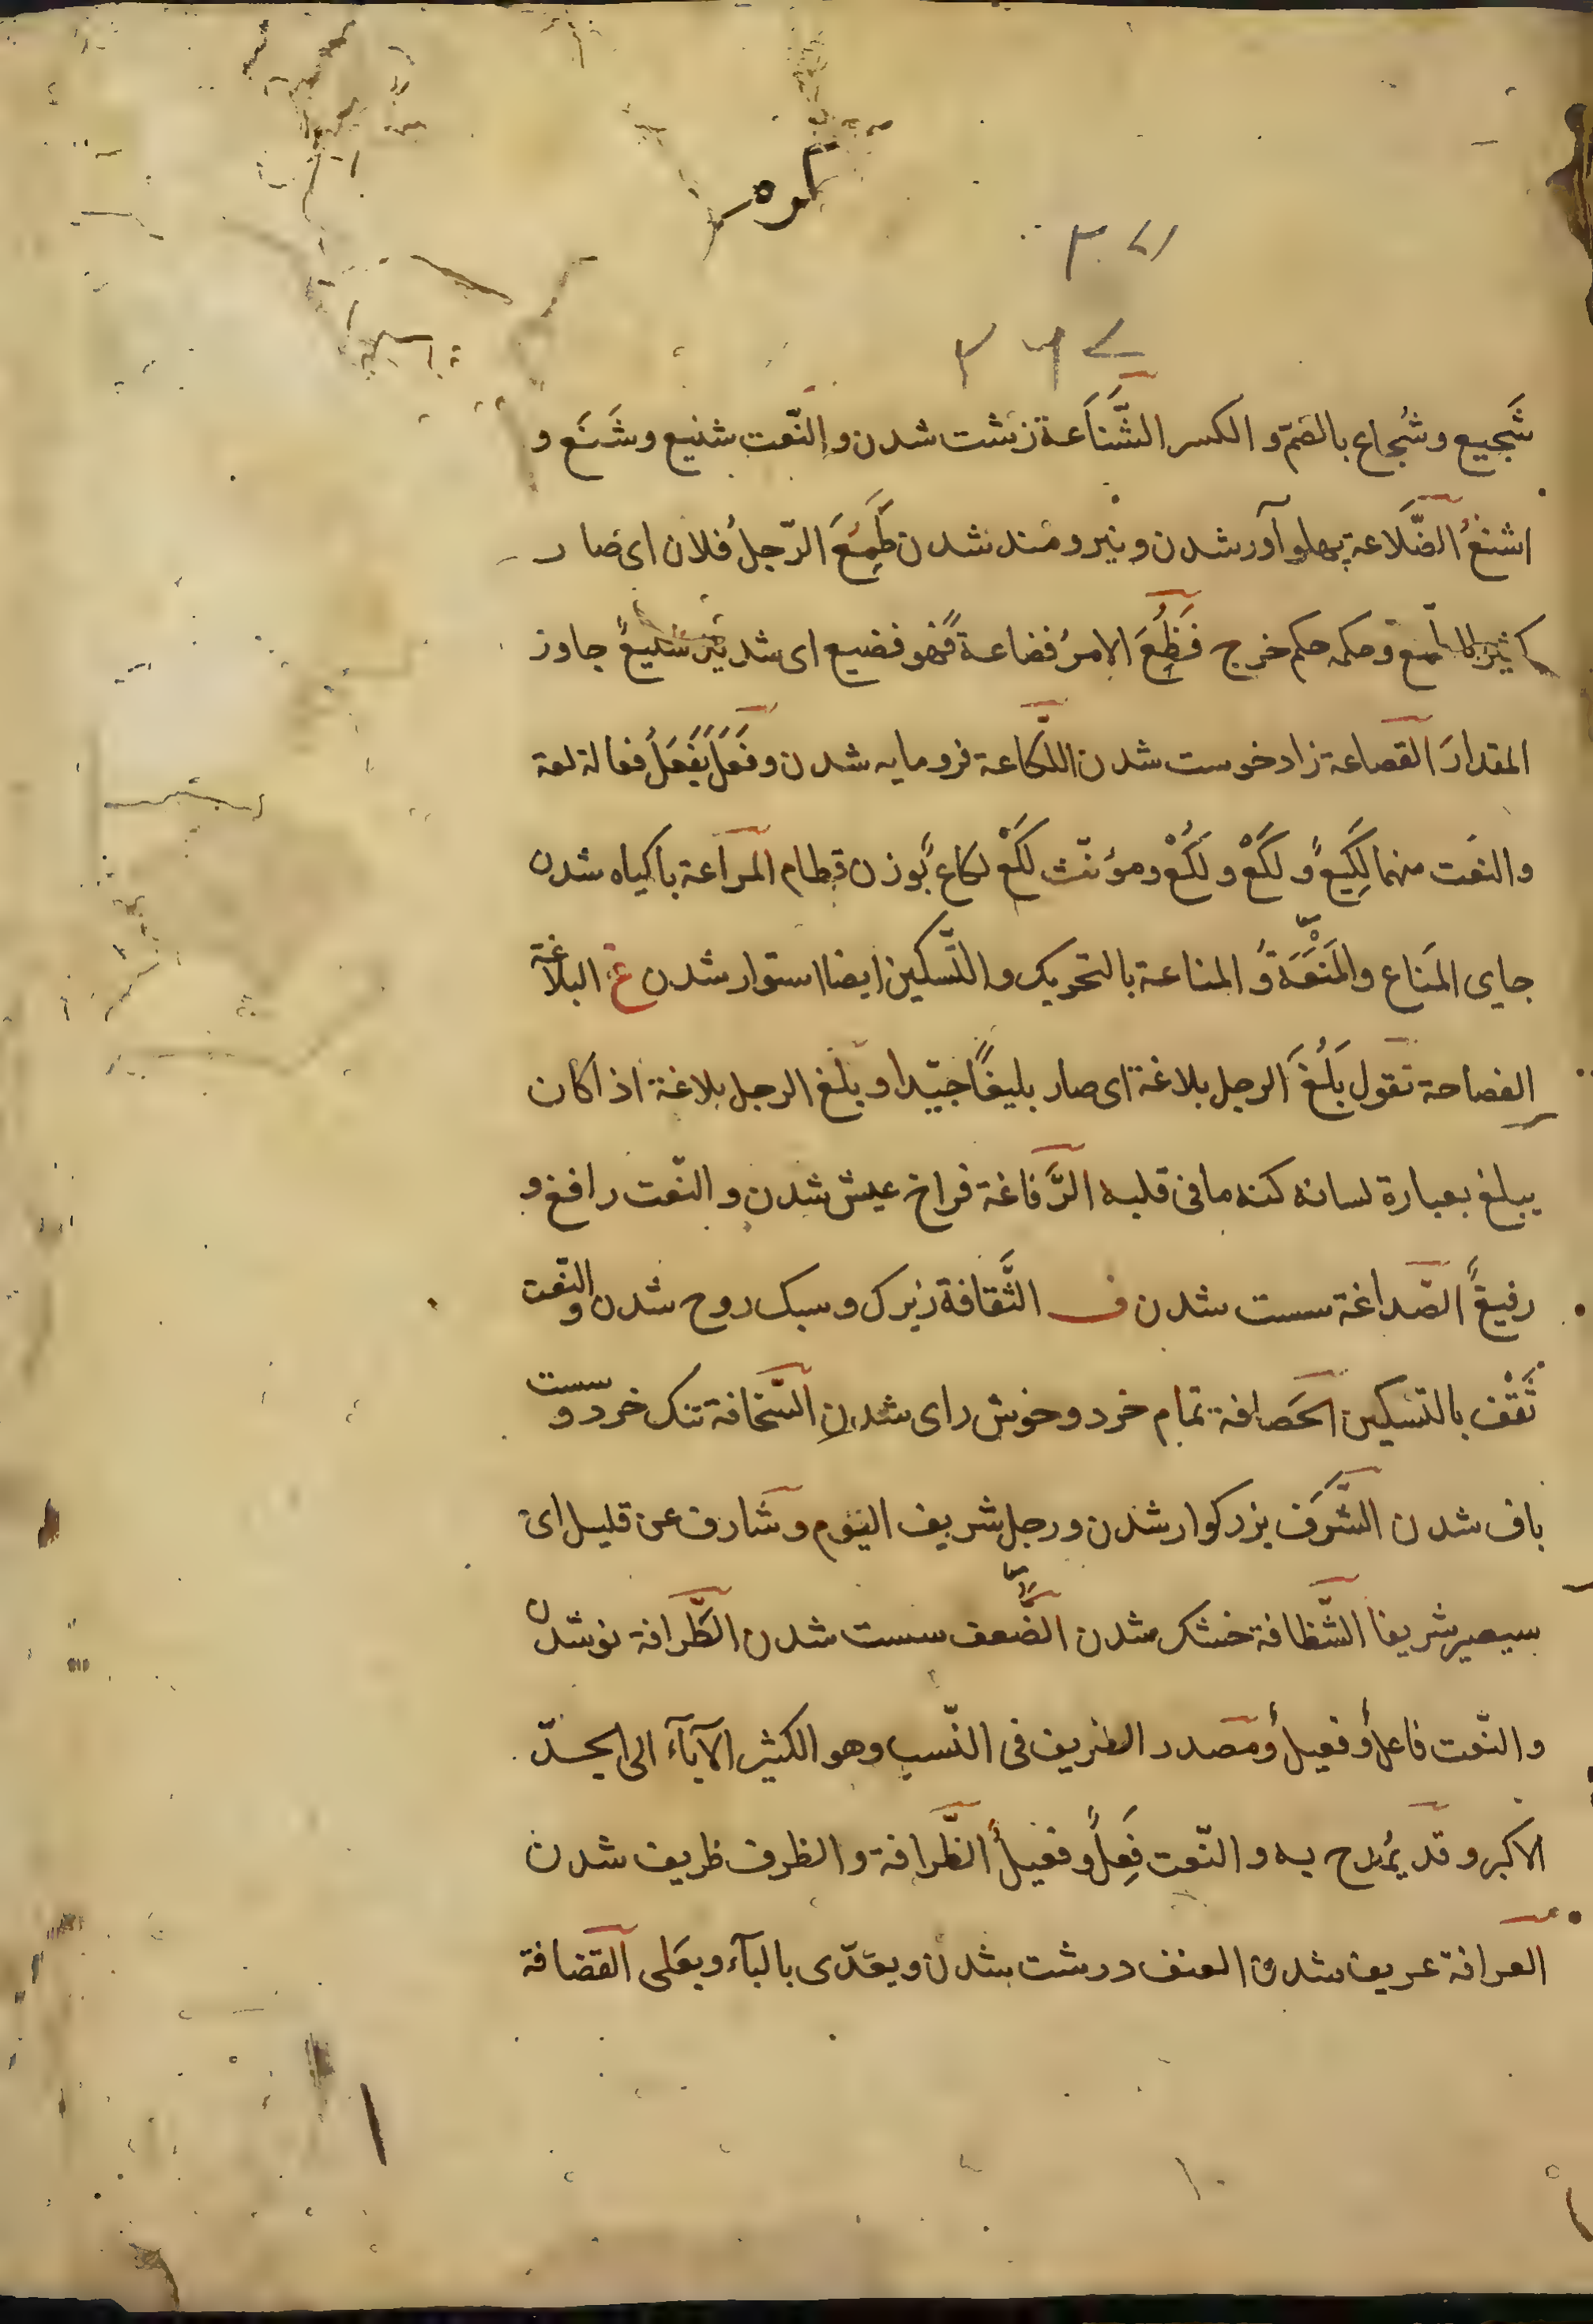 شَجیع وشُجاع بالضمّ و الکسر الشَّنَاعة زشت شدن والنّعت شنیع وشَنَع و
اشنعُ الضَّلاعة پهلو آور شدن و نیرومند شدن طَمِعَ الرّجلُ فلان ای صار
کثیر الطمع وحکمه حکم خرج فَظِعَ الامرُ فضاعة فهو فضیع ای شدید شنیع جاوز
المقدارَ القصاعة زاد خوست شدن اللّکاعة فرومایه شدن وفَعَلَ یَفعَلُ فعالة لغة
والنعت منهما لَکِیعٌ و لَکَعْ و لَکُعْ ومؤنّث لَکَعْ لکاعِ بوزن قطام المراعة باکیاه شدن
جای المَناع والمَنْعَةُ و المناعة بالتحریک والتّسکین ایضا استوار شدن غ البلاغة
الفصاحة تقول بَلُغَ الرجل بلاغة ای صار بلیغًا جیّدا و بلغ الرجل بلاغة اذا کان
یبلغ بعبارة لسانه کنه ما فی قلبه الرَّفاغة فراخ عیش شدن و النّعت رافغ و
رفیغٌ الصّداغة سست شدن ف الثَّقافة زیرک و سبک روح شدن والنّعت
ثَقْف بالتسکین الحَصافة تمام خرد و خوش رای شدن السّخافة تنک خرد و سست
باف شدن الشَّرَف بزرکوار شدن ورجل شریف الیوم وشارف عن قلیل ای
سیصیر شریفا الشّظافة خشک شدن الضُّعف سست شدن الطّرافة نو شدن
والنّعت فاعل وفعیلٌ ومصدر الطریف فی النّسب وهو الکثیر الآبآء الی الجدّ
الاکبر و قد یُمدح به و النّعت فَعِلٌ وفعیلٌ الظّرافة والظرف ظریف شدن
العرافة عریف شدن العنف درشت شدن ویعدّی بالبآء وبعلی القضافة